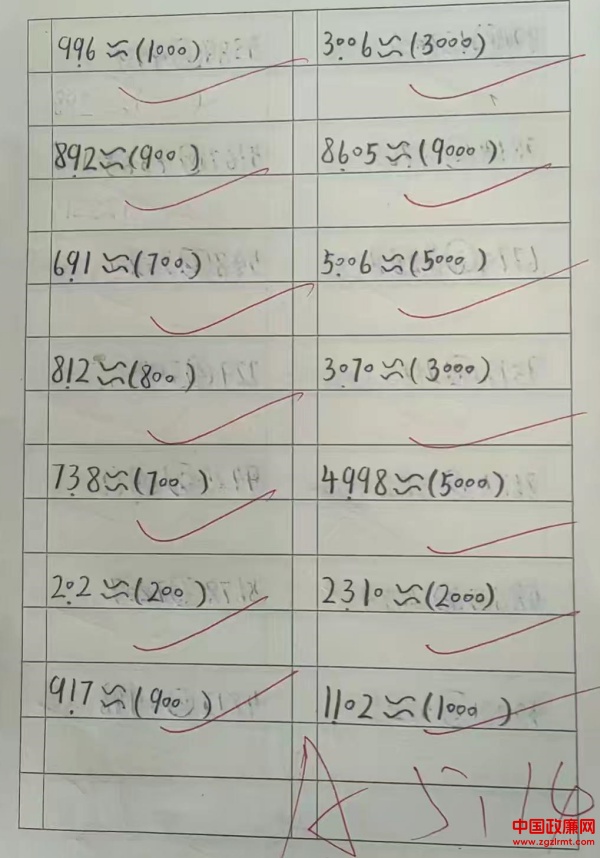 996≈(1000) 3006≈(3000)
892≈(900) 8605≈(9000)
691≈(700) 5006≈(5000)
812≈(800) 3070≈(3000)
738≈(700) 4998≈(5000)
202≈(200) 2310≈(2000)
917≈(900) 1102≈(1000)
A
中国政廉网
www.zgzlrmt.com